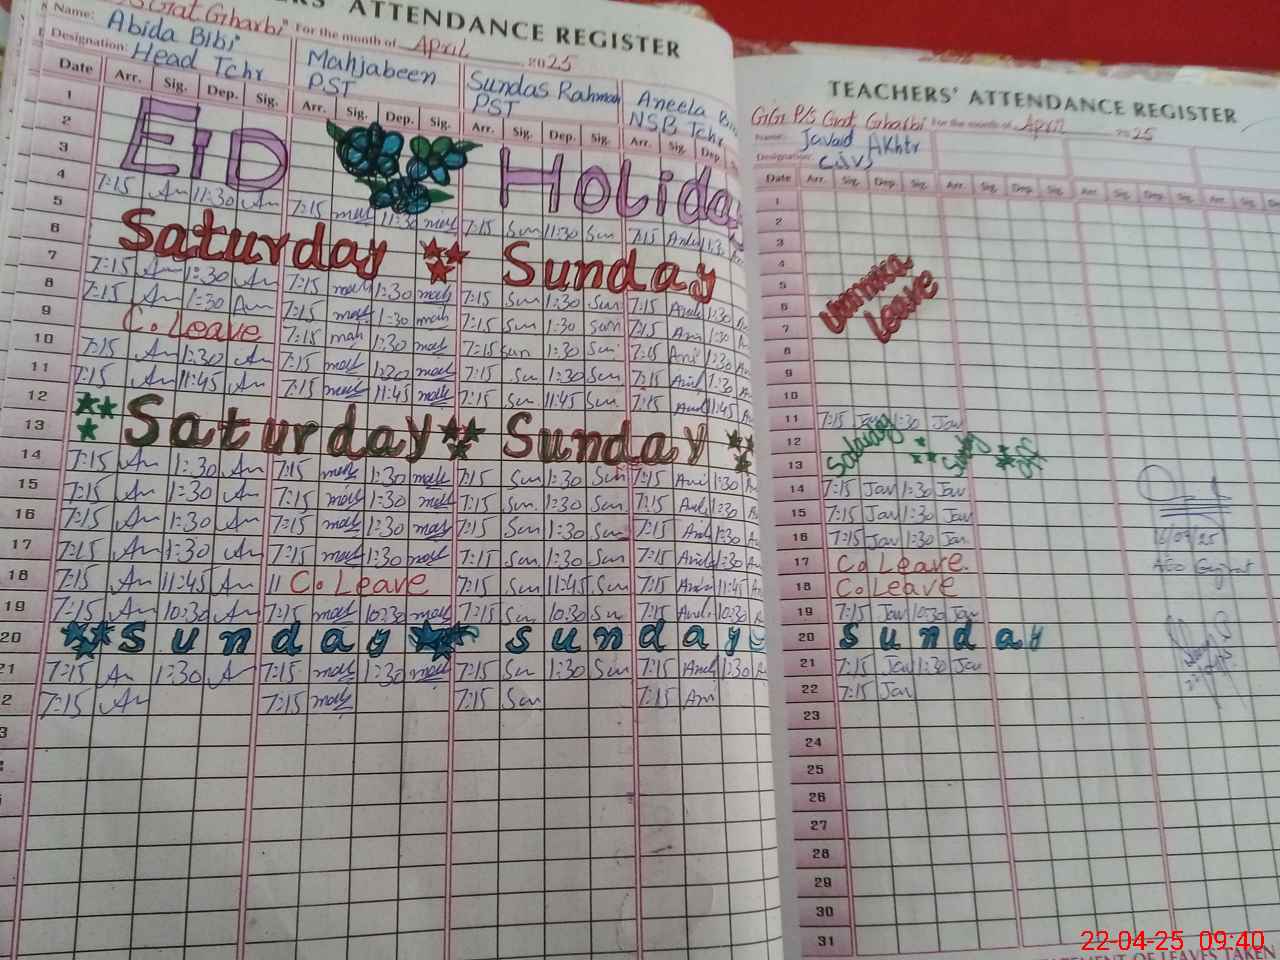 TEACHERS' ATTENDANCE REGISTER
Giat Gharbi" For the month of April 2025
Name: Abida Bibi Mahjabeen Sundas Rahman Aneela
Designation: Head Tchr PST PST NSB Tchr
Date Arr. Sig. Dep. Sig. Arr. Sig. Dep. Sig. Arr. Sig. Dep. Sig. Arr. Sig. Dep
1
2
3 EID Holiday
4
5 7:15 An 11:30 An 7:15 mah 11:30 mah 7:15 Sun 11:30 Sun 7:15
6 Saturday Sunday
7
8 7:15 An 1:30 An 7:15 mah 1:30 mah 7:15 Sun 1:30 Sun 7:15 1:30
9 7:15 An 1:30 An 7:15 mah 1:30 mah 7:15 Sun 1:30 Sun 7:15 1:30
10 C. Leave 7:15 mah 1:30 mah 7:15 Sun 1:30 Sun 7:15 1:30
11 7:15 An 1:30 An 7:15 mah 1:30 mah 7:15 Sun 1:30 Sun 7:15 1:30
12 7:15 An 11:45 An 7:15 mah 11:45 mah 7:15 Sun 11:45 Sun 7:15 11:45
13 Saturday Sunday
14 7:15 An 1:30 An 7:15 mah 1:30 mah 7:15 Sun 1:30 Sun 7:15 1:30
15 7:15 An 1:30 An 7:15 mah 1:30 mah 7:15 Sun 1:30 Sun 7:15 1:30
16 7:15 An 1:30 An 7:15 mah 1:30 mah 7:15 Sun 1:30 Sun 7:15 1:30
17 7:15 An 1:30 An 7:15 mah 1:30 mah 7:15 Sun 1:30 Sun 7:15 1:30
18 7:15 An 11:45 An C. Leave 7:15 Sun 11:45 Sun 7:15 11:45
19 7:15 An 10:30 An 7:15 mah 10:30 mah 7:15 Sun 10:30 Sun 7:15 10:30
20 Sunday Sunday
21 7:15 An 1:30 An 7:15 mah 1:30 mah 7:15 Sun 1:30 Sun 7:15 1:30
2 7:15 An 7:15 mah 7:15 Sun 7:15 Ani
3
TEACHERS' ATTENDANCE REGISTER
GGr P/S Giat Gharbi For the month of April 2025
Name: Javaid Akhtr
Designation: C-IV
Date Arr. Sig. Dep. Sig. Arr. Sig. Dep. Sig. Arr. Sig. Dep. Sig. Arr. Sig. Dep.
1
2
3
4
5 Ummra
6 Leave
7
8
9
10
11 7:15 Jav 1:30 Jav
12 Saturday Sunday
13
14 7:15 Jav 1:30 Jav
15 7:15 Jav 1:30 Jav
16 7:15 Jav 1:30 Jav
17 C. Leave.
18 C. Leave
19 7:15 Jav 10:30 Jav
20 Sunday
21 7:15 Jav 1:30 Jav
22 7:15 Jav
23
24
25
26
27
28
29
30
31
AEO Gujrat
OF LEAVES TAKEN
22-04-25 09:40